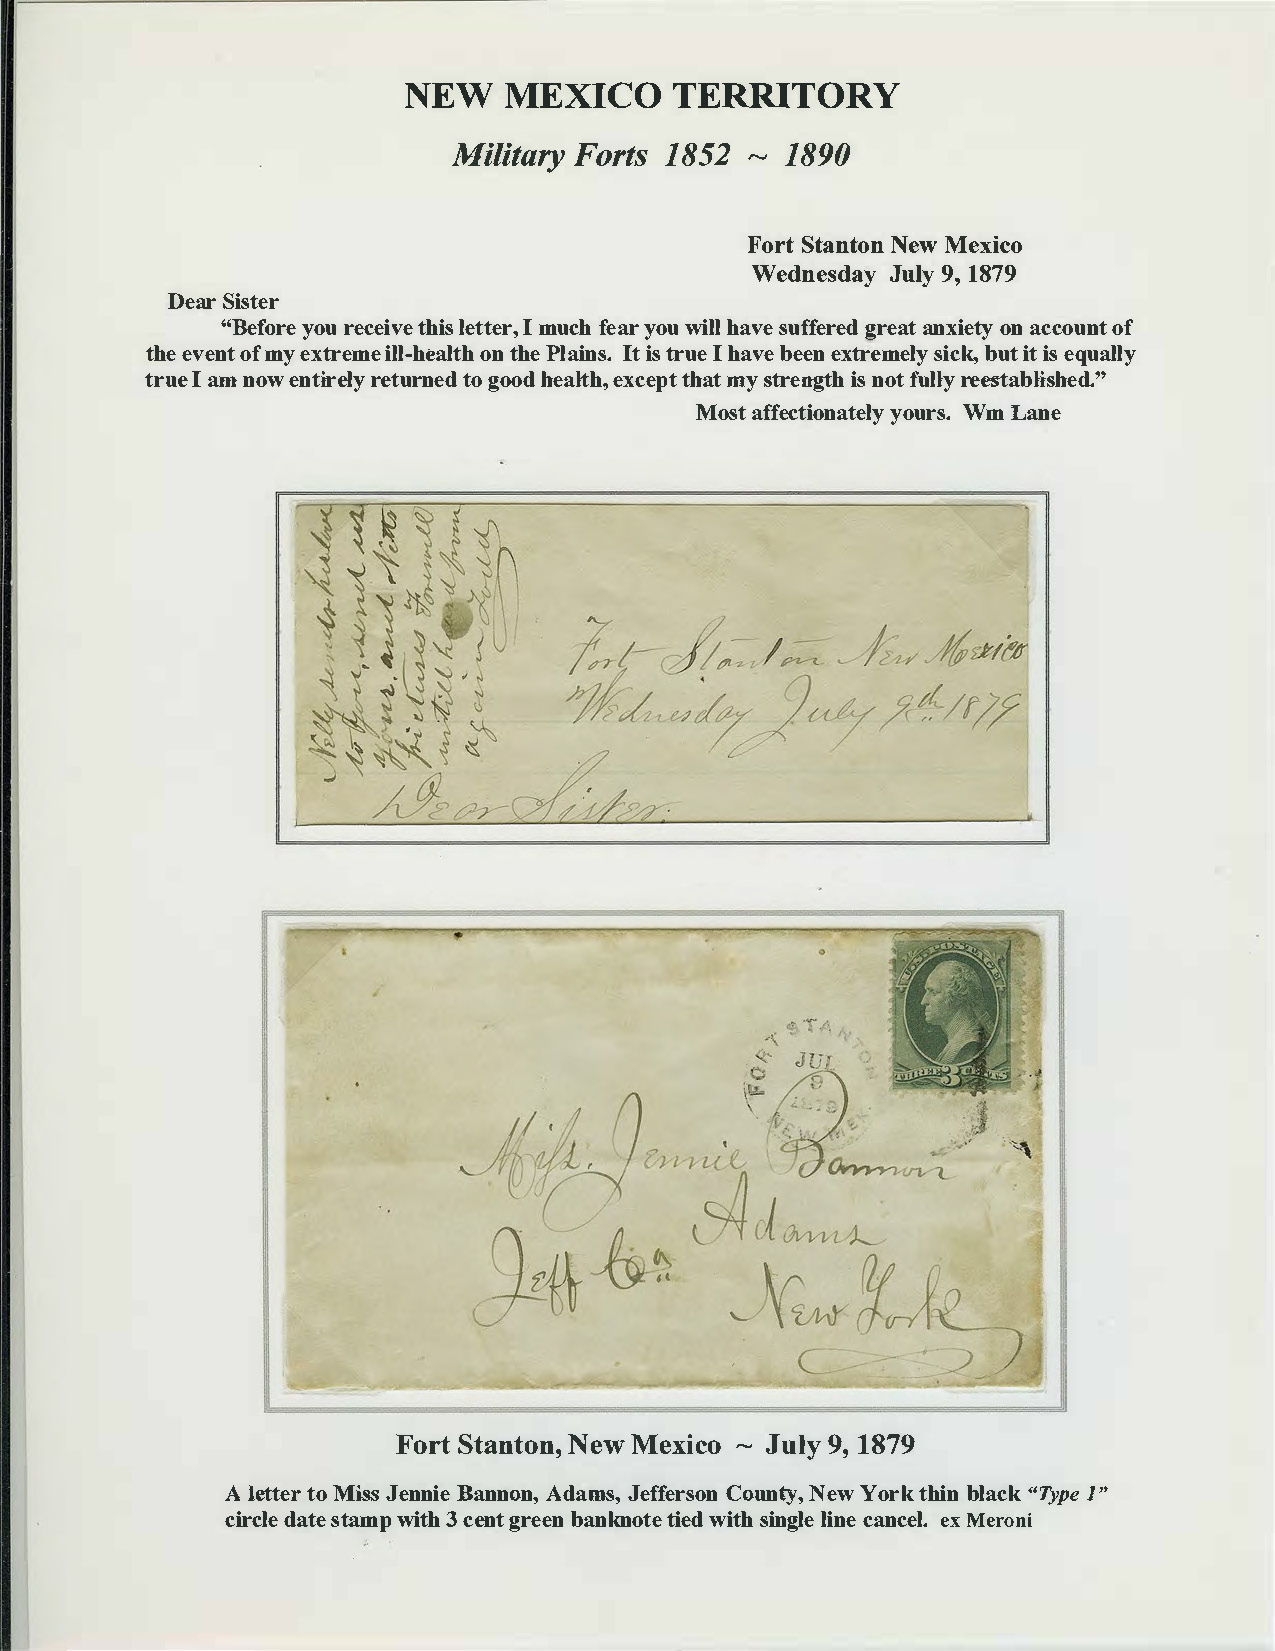 NEW MEXICO TERRITORY
Military Forts 1852 ~ 1890
Fort Stanton New Mexico
Wednesday July 9, 1879
Dear Sister
“Before you receive this letter, I much fear you will have suffered great anxiety on account of
the event of my extreme ill-health on the Plains. It is true I have been extremely sick, but it is equally
true I am now entirely returned to good health, except that my strength is not fully reestablished.”
Most affectionately yours. Wm Lane
Nelly sends his love
to you, send us
your and
pictures Farewell
untill heard from
again Todd
Fort Stanton New Mexico
Wednesday July 9th 1879
Dear Sister.
U.S. POSTAGE
THREE 3 CENTS
FORT STANTON
JUL
9
1879
NEW MEX.
Miss. Jennie Bannon
Adams
Jeff Co.
New York
Fort Stanton, New Mexico ~ July 9, 1879
A letter to Miss Jennie Bannon, Adams, Jefferson County, New York thin black “Type 1”
circle date stamp with 3 cent green banknote tied with single line cancel. ex Meroni